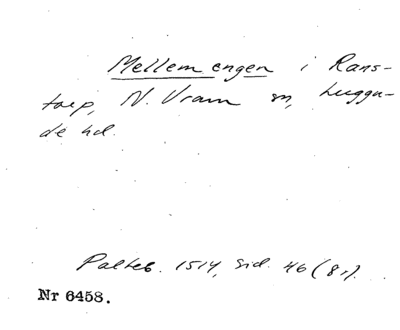 Mellemengen i Rans-
torp, N. Vram sn, Luggu-
de hd.
Palteb. 1514, sid. 46 (8r).
Nr 6458.